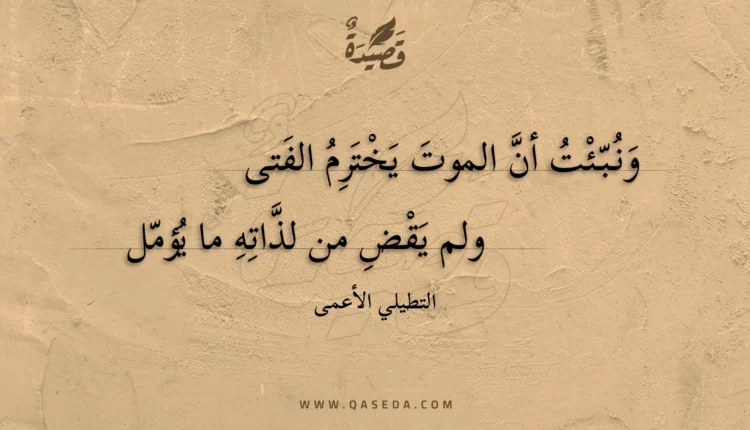 قَصِيْدَةٌ
وَنُبّئْتُ أنَّ الموتَ يَخْتَرِمُ الفَتى
ولم يَقْضِ من لذَّاتِهِ ما يُؤمّل
التطيلي الأعمى
WWW.QASEDA.COM